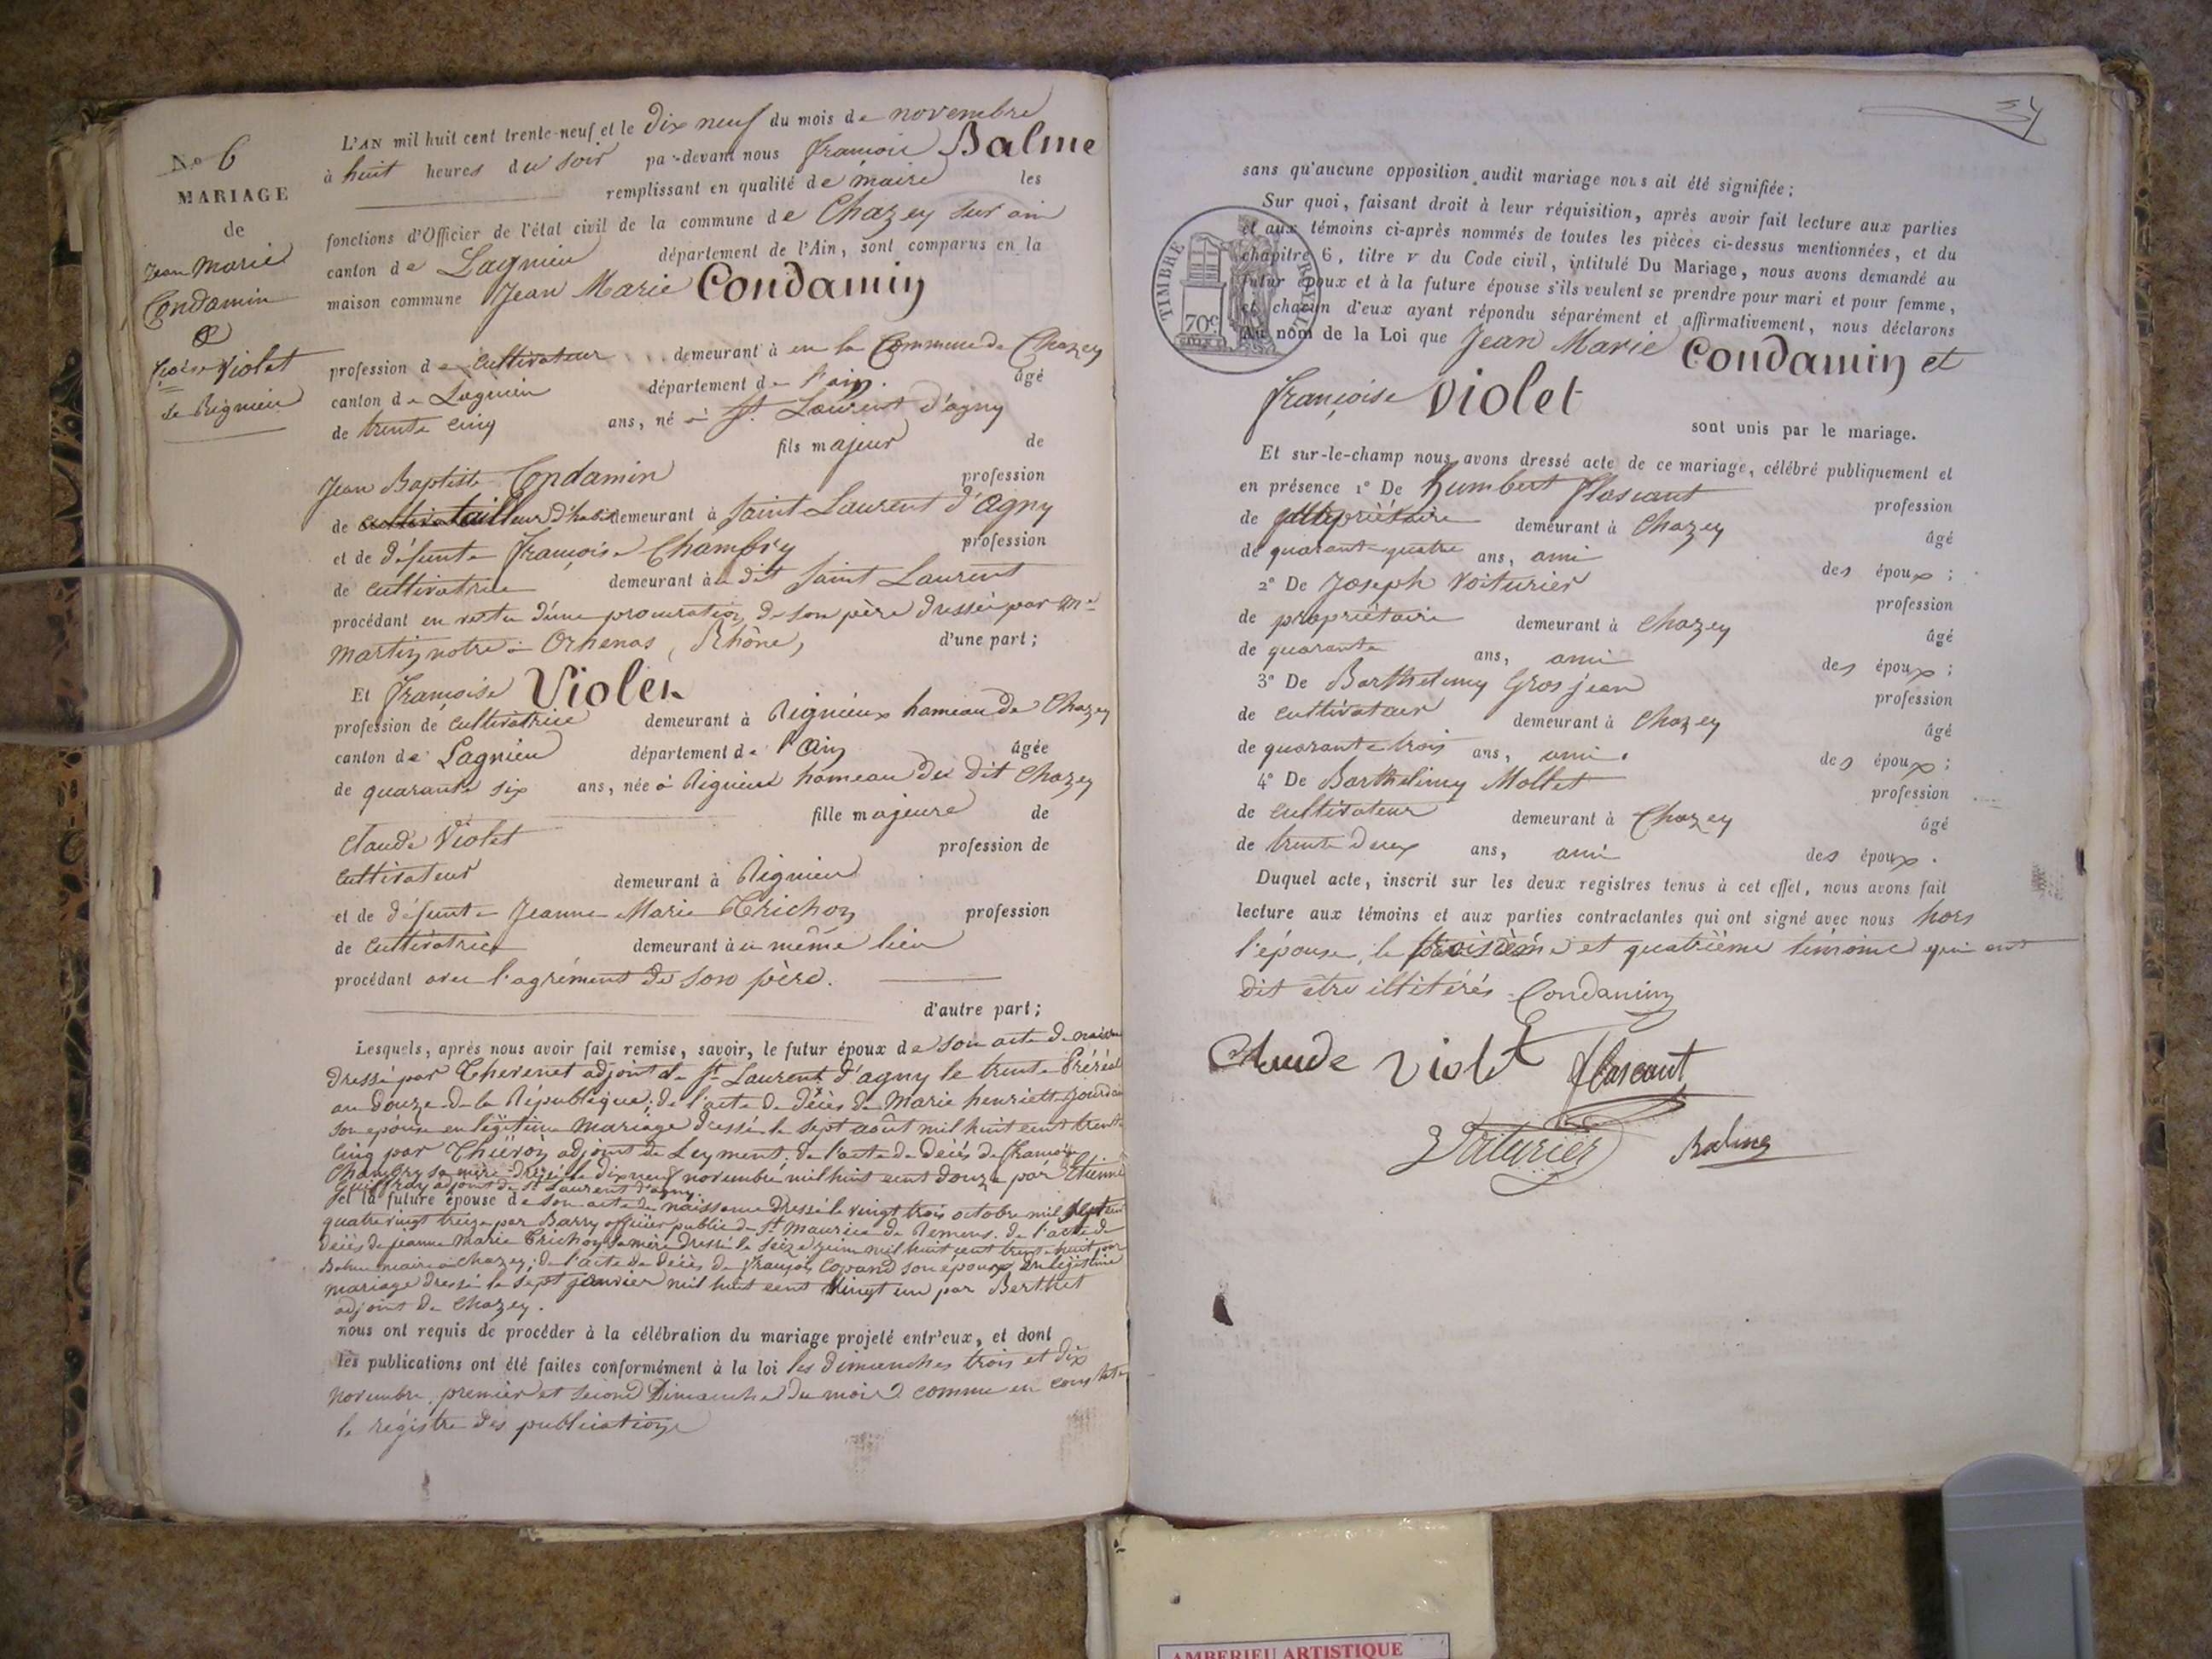 No 6
MARIAGE
de
Jean Marie
Condamin
&
Violet
de Rignieu
L'AN mil huit cent trente-neuf et le dix neuf du mois de novembre
à huit heures du soir par-devant nous François Balme
remplissant en qualité de maire les
fonctions d'Officier de l'état civil de la commune de Chazey sur ain
canton de Lagnieu département de l'Ain, sont comparus en la
maison commune Jean Marie Condamin
profession de cultivateur demeurant à en la Commune de Chazey
canton de Lagnieu département de l'ain. âgé
de trente cinq ans, né à St. Laurent d'agny
fils majeur de
Jean Baptiste Condamin profession
de tailleur d'habit demeurant à Saint Laurent d'Agny
et de défunte Françoise Chambry profession
de cultivatrice demeurant au dit Saint Laurent
procédant en vertu d'une procuration de son père dressée par Me
Martin notre à Orhenas, Rhône, d'une part;
Et Françoise Violet
profession de cultivatrice demeurant à Rignieux hameau de Chazey
canton de Lagnieu département de l'Ain âgée
de quarante six ans, née à Rignieu hameau du dit Chazey
fille majeure de
Claude Violet profession de
cultivateur demeurant à Rignieu
et de défunte Jeanne Marie Trichon profession
de cultivatrice demeurant au même lieu
procédant avec l'agrément de son père.
d'autre part;
Lesquels, après nous avoir fait remise, savoir, le futur époux de son acte de
dressé par Thevenet adjoint de St Laurent d'agny le trente
an douze de la République; de l'acte de décès de Marie henriette
son épouse en légitime mariage dressé le sept août mil huit cent trente
cinq par adjoint de Leyment de l'acte de décès de
Chambry sa mère dressé le dix neuf novembre mil huit cent douze par Etienne
Guiffray adjoint de St Laurent d'agny.
et la future épouse de son acte de naissance dressé le vingt trois octobre mil sept cent
quatre vingt treize par Barry officier public de St Maurice de Remens. de l'acte de
décès de Jeanne Marie Trichon sa mère dressé le seize juin mil huit cent trente huit par
Balme maire à Chazey; de l'acte de décès de François Copand son époux en légitime
mariage dressé le sept janvier mil huit cent vingt un par Berthet
adjoint de Chazey.
nous ont requis de procéder à la célébration du mariage projeté entr'eux, et dont
les publications ont été faites conformément à la loi les dimanches trois et dix
novembre, premier et second Dimanche du mois comme en constate
le régistre des publications
sans qu'aucune opposition audit mariage nous ait été signifiée;
Sur quoi, faisant droit à leur réquisition, après avoir fait lecture aux parties
et aux témoins ci-après nommés de toutes les pièces ci-dessus mentionnées, et du
chapitre 6, titre v du Code civil, intitulé Du Mariage, nous avons demandé au
futur époux et à la future épouse s'ils veulent se prendre pour mari et pour femme,
et chacun d'eux ayant répondu séparément et affirmativement, nous déclarons
Au nom de la Loi que Jean Marie Condamin et
Françoise Violet
sont unis par le mariage.
Et sur-le-champ nous avons dressé acte de ce mariage, célébré publiquement et
en présence 1° De humbert Flascaut profession
de propriétaire demeurant à Chazey âgé
de quarant-quatre ans, ami des époux;
2° De Joseph Voiturier profession
de propriétaire demeurant à Chazey âgé
de quarante ans, ami des époux;
3° De Barthelemy Gros jean profession
de cultivateur demeurant à Chazey âgé
de quarante trois ans, ami. des époux;
4° De Barthélimy Mollet profession
de cultivateur demeurant à Chazey âgé
de trente deux ans, ami des époux.
Duquel acte, inscrit sur les deux registres tenus à cet effet, nous avons fait
lecture aux témoins et aux parties contractantes qui ont signé avec nous hors
l'épouse, le troisième et quatrième témoins qui ont
dit être illitérés Condamin
Claude Violet Flascaut
Voiturier Balme
TIMBRE ROYAL
70c
AMBERIEU ARTISTIQUE